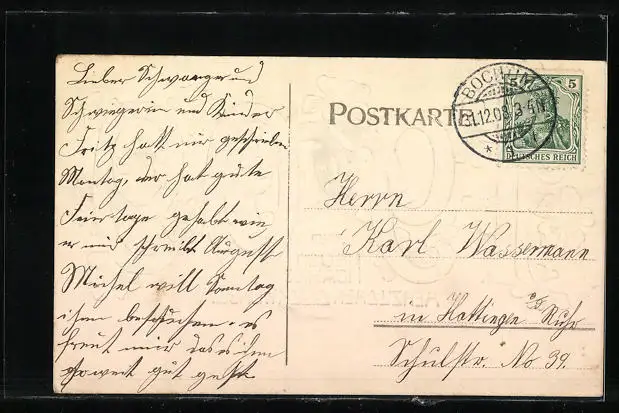 Lieber Schwager und
Schwiegerin und Kinder
Fritz hatt mir geschrieben
Montag, der hat gute
Feiertage gehabt wie
er mir schreibt August
Michel will Sonntag
ihm besuchen. es
freut mir das es ihm
soweit gut geht
POSTKARTE
BOCHUM
31.12.09. 3-4N.
5 5
DEUTSCHES REICH
Herrn
Karl Wassermann
in Hattingen a/d. Ruhr
Schulstr. No 39.